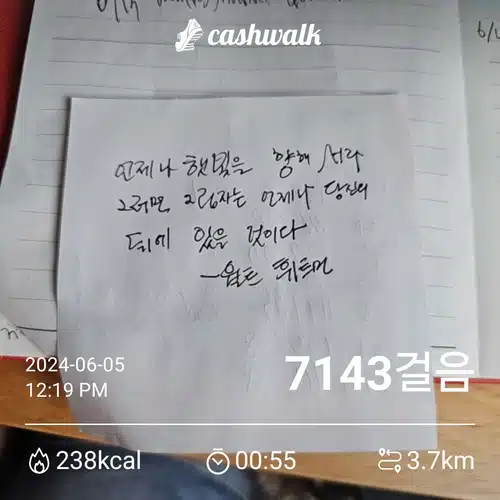 cashwalk
언제나 햇빛을 향해 서라
그러면 그림자는 언제나 당신의
뒤에 있을 것이다
- 월트 휘트먼
2024-06-05
12:19 PM
7143걸음
238kcal
00:55
3.7km